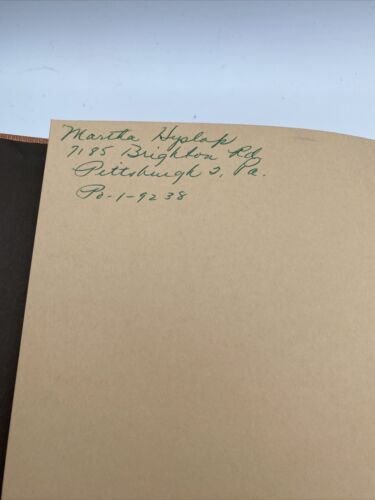 Martha Hyslop
7185 Brighton Rd
Pittsburgh 2, Pa.
Po-1-9238